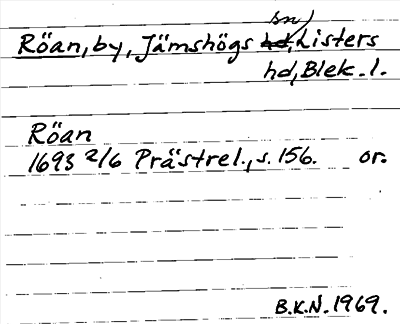 Röan, by, Jämshögs sn, Listers
hd, Blek. l.
Röan
1693 2/6 Prästrel., s. 156. or.
B.K.N. 1969.